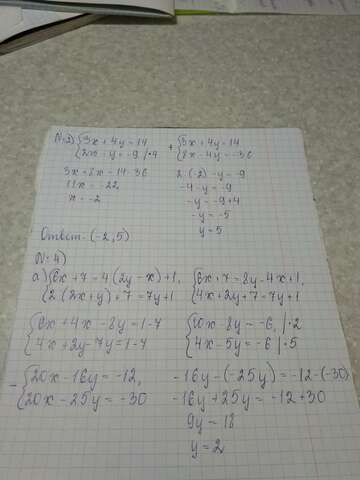 N:2) {3x + 4y = 14
{2x - y = -9 | · 4
+ {3x + 4y = 14
{8x - 4y = -36
3x + 8x = 14 - 36
11x = -22
x = -2
2 · (-2) - y = -9
-4 - y = -9
-y = -9 + 4
-y = -5
y = 5
Ответ: (-2, 5)
N: 4)
а) {6x + 7 = 4(2y - x) + 1,
{2(2x + y) + 7 = 7y + 1
{6x + 7 = 8y - 4x + 1,
{4x + 2y + 7 = 7y + 1
{6x + 4x - 8y = 1 - 7
{4x + 2y - 7y = 1 - 7
{10x - 8y = -6, | · 2
{4x - 5y = -6 | · 5
- {20x - 16y = -12,
{20x - 25y = -30
-16y - (-25y) = -12 - (-30)
-16y + 25y = -12 + 30
9y = 18
y = 2